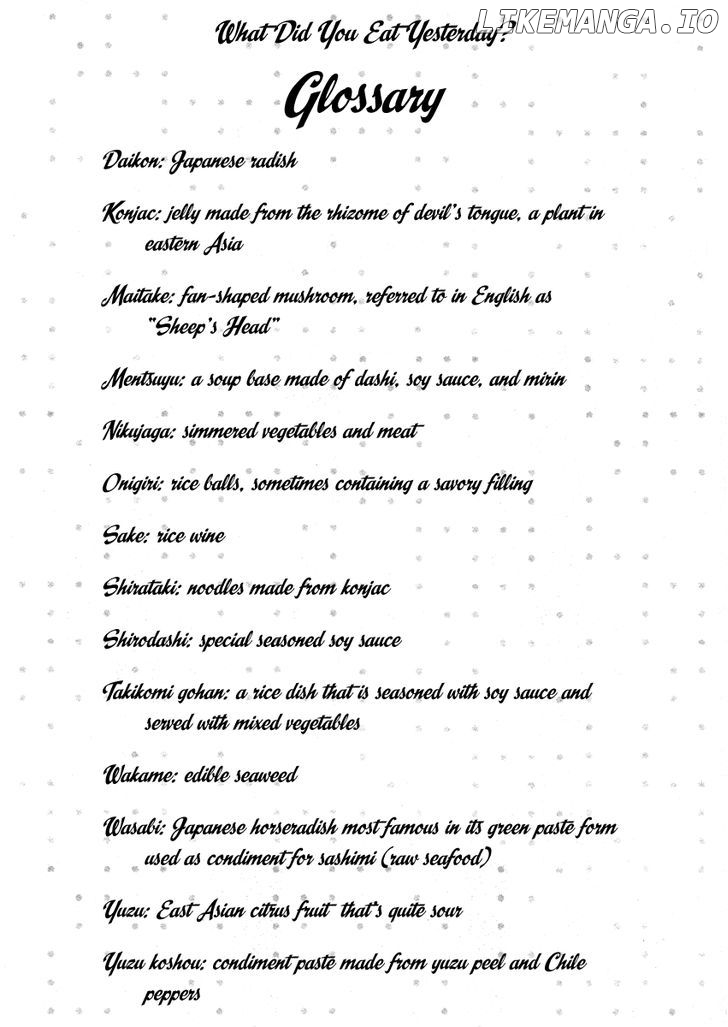 LIKEMANGA.IO
What Did You Eat Yesterday?
Glossary
Daikon: Japanese radish
Konjac: jelly made from the rhizome of devil's tongue, a plant in
eastern Asia
Maitake: fan-shaped mushroom, referred to in English as
"Sheep's Head"
Mentsuyu: a soup base made of dashi, soy sauce, and mirin
Nikujaga: simmered vegetables and meat
Onigiri: rice balls, sometimes containing a savory filling
Sake: rice wine
Shirataki: noodles made from konjac
Shirodashi: special seasoned soy sauce
Takikomi gohan: a rice dish that is seasoned with soy sauce and
served with mixed vegetables
Wakame: edible seaweed
Wasabi: Japanese horseradish most famous in its green paste form
used as condiment for sashimi (raw seafood)
Yuzu: East Asian citrus fruit that's quite sour
Yuzu koshou: condiment paste made from yuzu peel and Chile
peppers